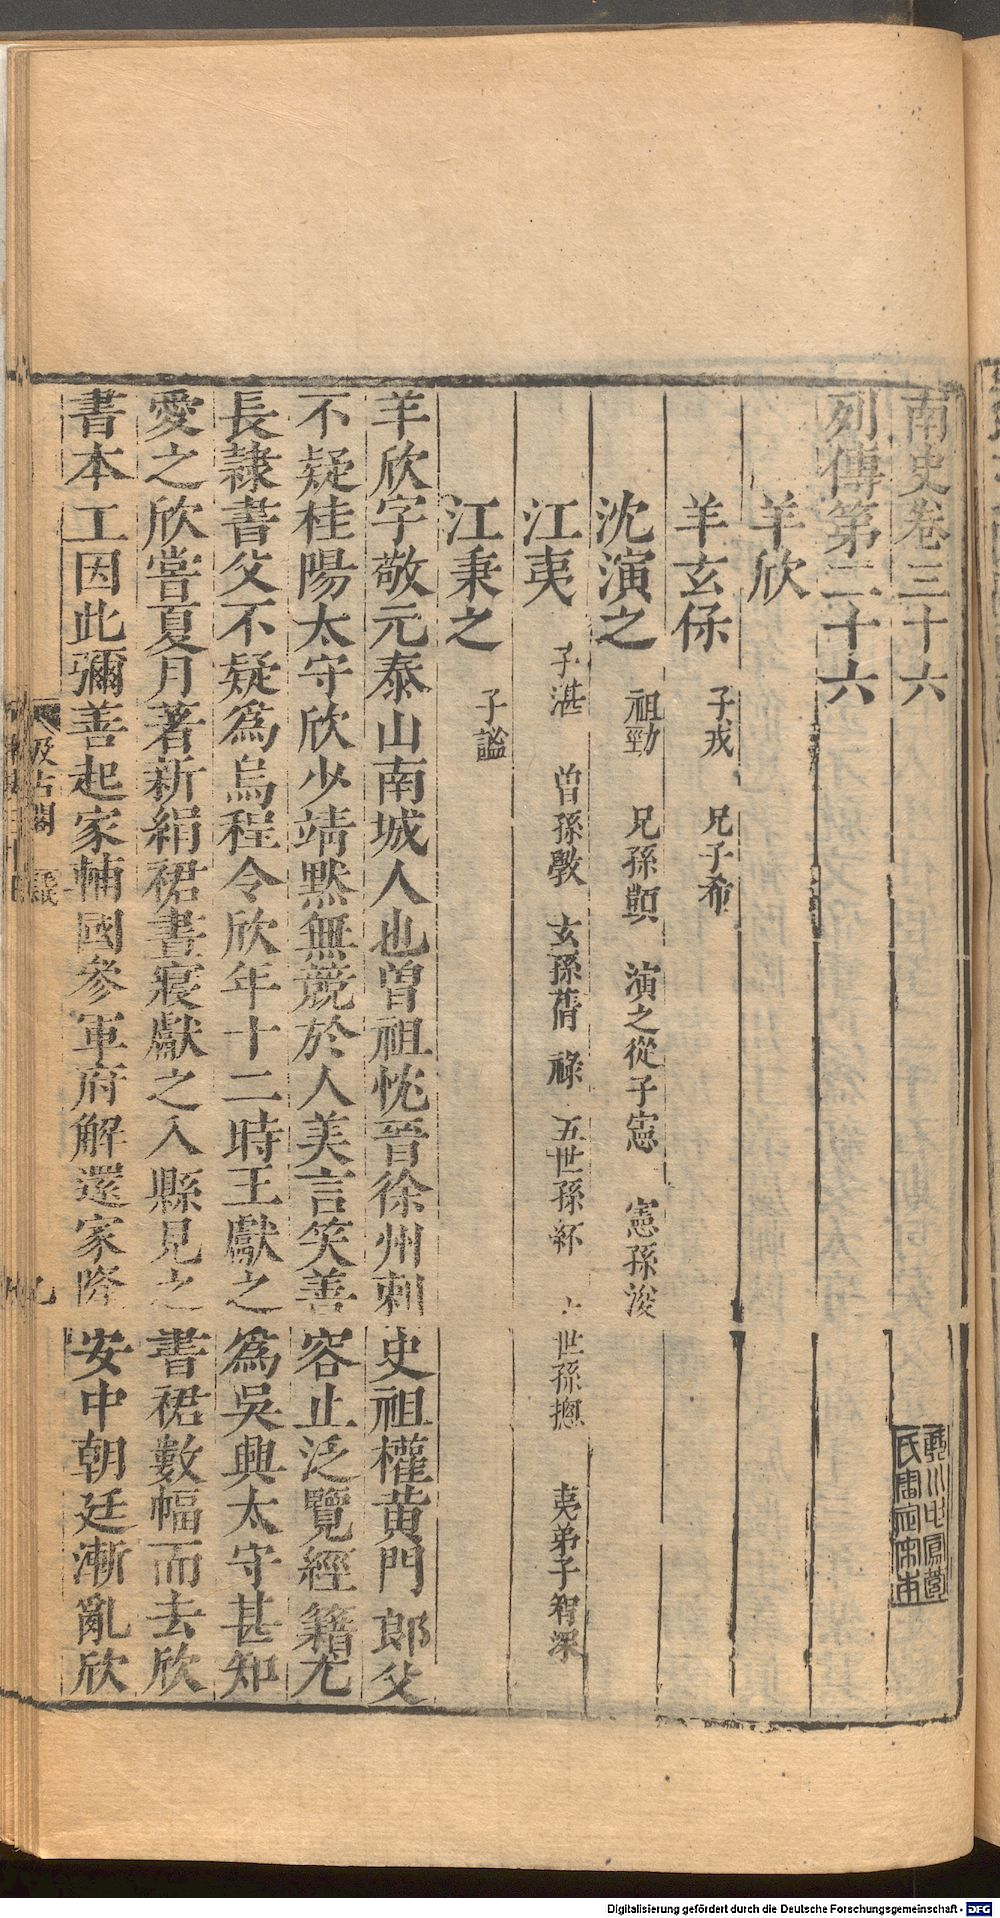 南史卷三十六
列傳第二十六
羊欣
羊玄保 子戎 兄子希
沈演之 祖勁 兄孫顗 演之從子憲 憲孫浚
江夷 子湛 曾孫斆 玄孫蒨 祿 五世孫紑 六世孫摠 夷弟子智深
江秉之 子謐
羊欣字敬元泰山南城人也曾祖忱晉徐州刺史祖權黃門郎父
不疑桂陽太守欣少靖黙無競於人美言笑善容止泛覽經籍尤
長隸書父不疑爲烏程令欣年十二時王獻之爲吳興太守甚知
愛之欣嘗夏月著新絹裙晝寢獻之入縣見之書裙數幅而去欣
書本工因此彌善起家輔國參軍府解還家隆安中朝廷漸亂欣
汲古閣
Digitalisierung gefördert durch die Deutsche Forschungsgemeinschaft - DFG